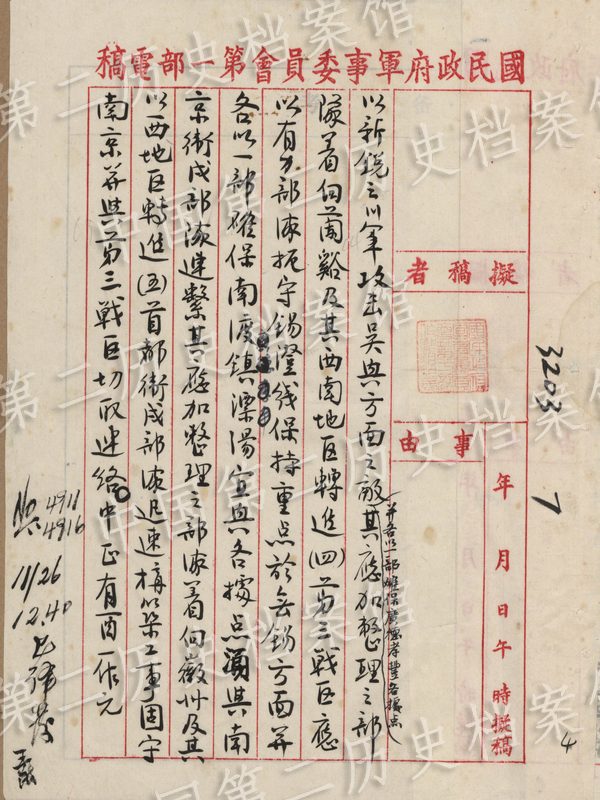 國民政府軍事委員會第一部電稿
擬稿者
事由
年月日午時擬稿
3203
4
以新銳之川軍攻击吳興方面之敵其應加整理之部
並各以一部確保廣德孝豐各據点
隊着向蘭谿及其西南地區轉進(四)第三戰區應
以有力部隊扼守錫澄线保持重点於無錫方面並
各以一部確保南渡鎮溧陽宜興各據点與南
京衛戍部隊連繫其應加整理之部隊着向徽州及其
以西地區轉進(五)首都衛戍部隊迅速構以築工事固守
南京並與第三戰區切取連絡中正有酉一作元
No. 4911
4916
11/26
12.40
中国第二历史档案馆